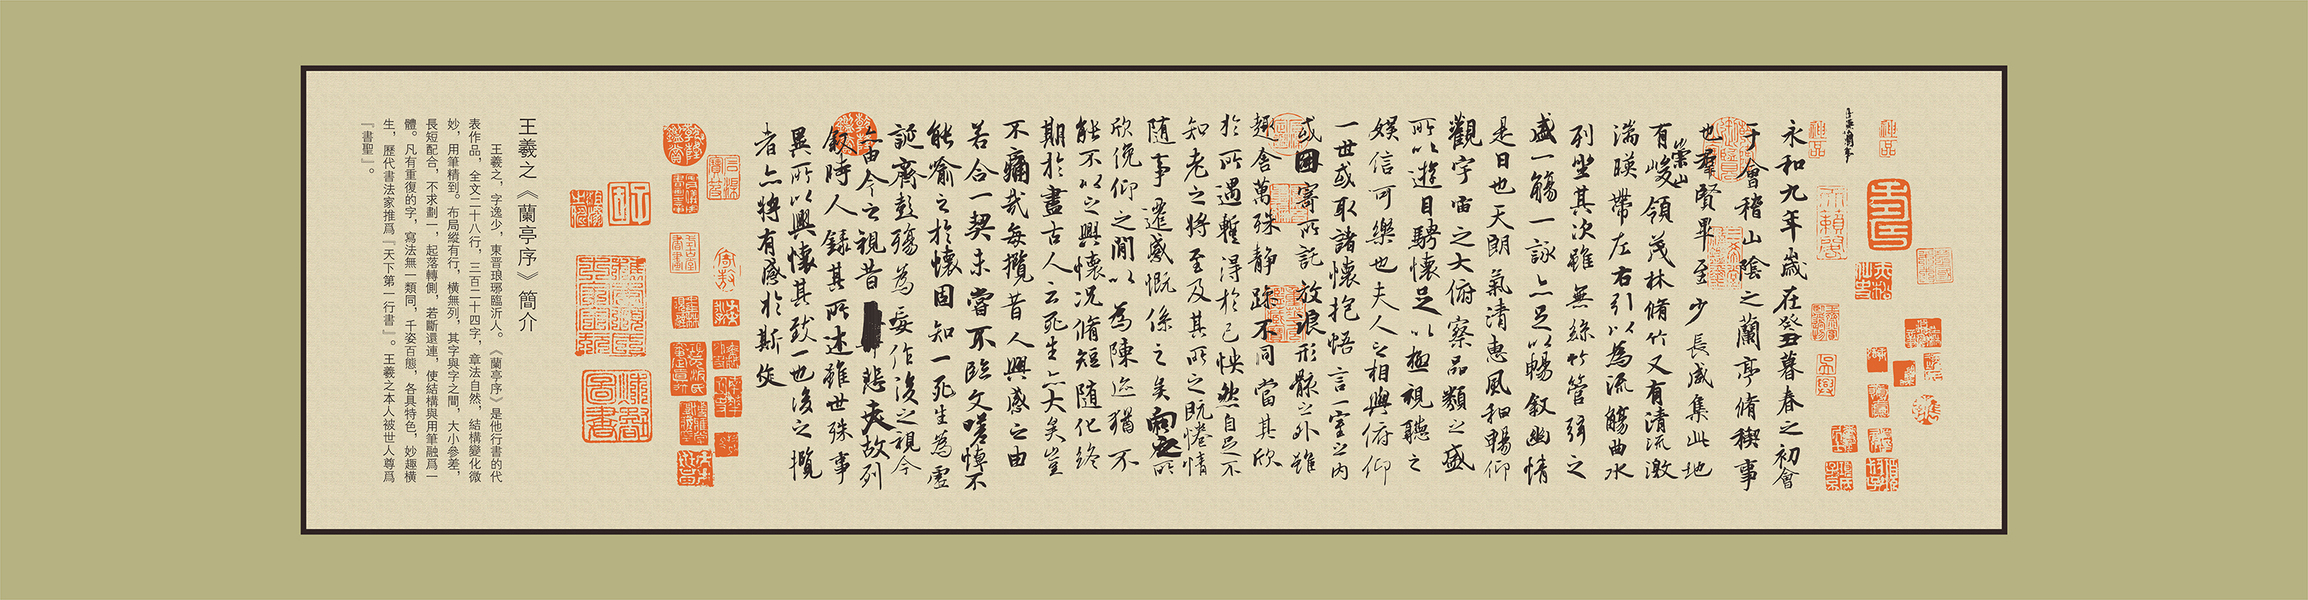 永和九年歲在癸丑暮春之初會
于會稽山陰之蘭亭脩稧事
也羣賢畢至少長咸集此地
有崇山峻領茂林脩竹又有清流激
湍暎帶左右引以為流觴曲水
列坐其次雖無絲竹管弦之
盛一觴一詠亦足以暢敘幽情
是日也天朗氣清惠風和暢仰
觀宇宙之大俯察品類之盛
所以遊目騁懷足以極視聽之
娛信可樂也夫人之相與俯仰
一世或取諸懷抱悟言一室之內
或因寄所託放浪形骸之外雖
趣舍萬殊靜躁不同當其欣
於所遇蹔得於己怏然自足不
知老之將至及其所之既惓情
隨事遷感慨係之矣向之所
欣俛仰之閒以為陳迹猶不
能不以之興懷況脩短隨化終
期於盡古人云死生亦大矣豈
不痛哉每攬昔人興感之由
若合一契未嘗不臨文嗟悼不
能喻之於懷固知一死生為虛
誕齊彭殤為妄作後之視今
亦由今之視昔悲夫故列
敘時人錄其所述雖世殊事
異所以興懷其致一也後之攬
者亦將有感於斯文
王羲之《蘭亭序》簡介
王羲之，字逸少，東晋琅琊臨沂人。《蘭亭序》是他行書的代
表作品，全文二十八行，三百二十四字，章法自然，結構變化微
妙，用筆精到。布局縱有行，橫無列，其字與字之間，大小參差，
長短配合，不求劃一，起落轉側，若斷還連，使結構與用筆融爲一
體。凡有重復的字，寫法無一類同，千姿百態，各具特色，妙趣橫
生，歷代書法家推爲『天下第一行書』。王羲之本人被世人尊爲
『書聖』。